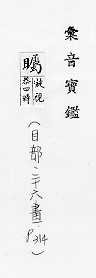 彙音寶鑑
矚 放視
恭四時
(目部二十六畫 P.314)